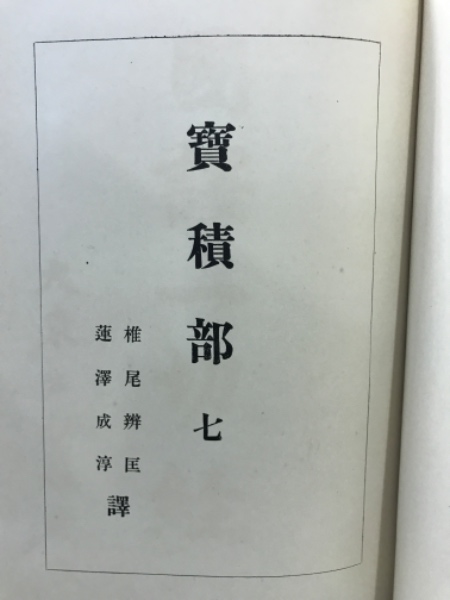 寶積部七
椎尾辨匡
蓮澤成淳
譯